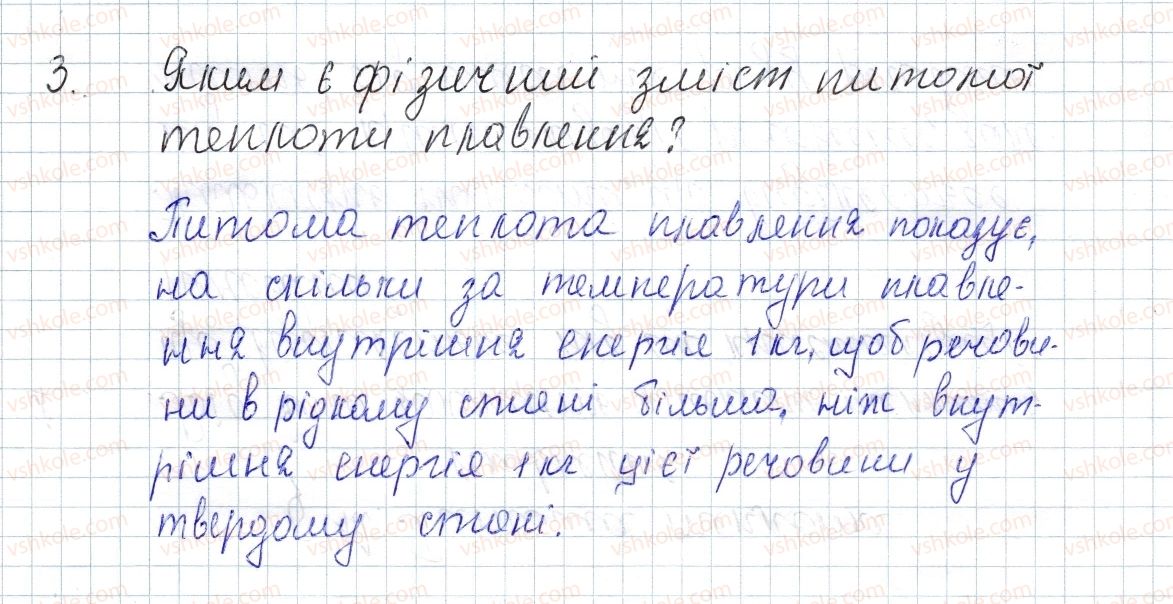 3. Яким є фізичний зміст питомої
теплоти плавлення?
Питома теплота плавлення показує,
на скільки за температури плавле-
ння внутрішня енергія 1 кг, щоб речови-
ни в рідкому стані більша, ніж внут-
рішня енергія 1 кг цієї речовини у
твердому стані.